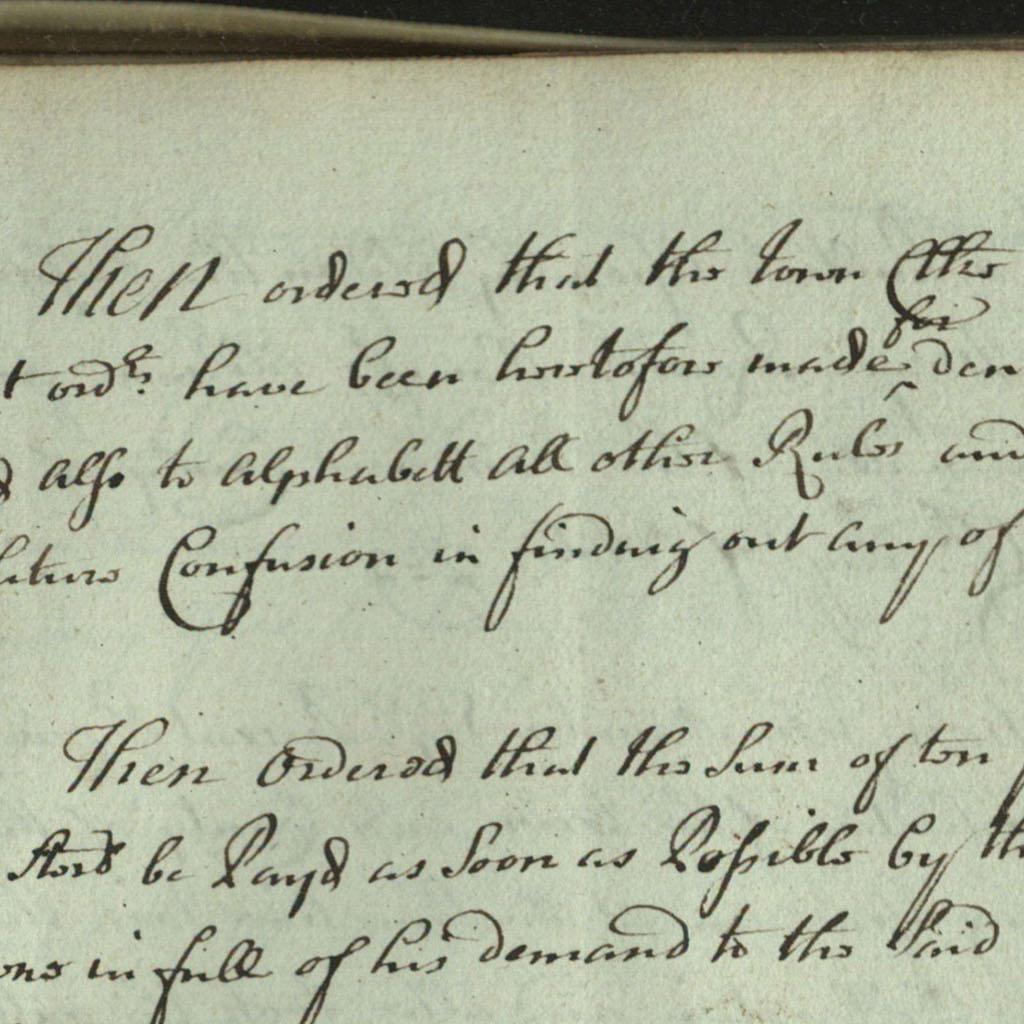 Then ordered that the town Clke
for
t ordrs. have been heretofore made ^ den
also to alphabett all other Rules and
future Confusion in finding out any of
Then Ordered that the Sum of ten
Sterd be Payd as Soon as Possible by th
one in full of his demand to the Said